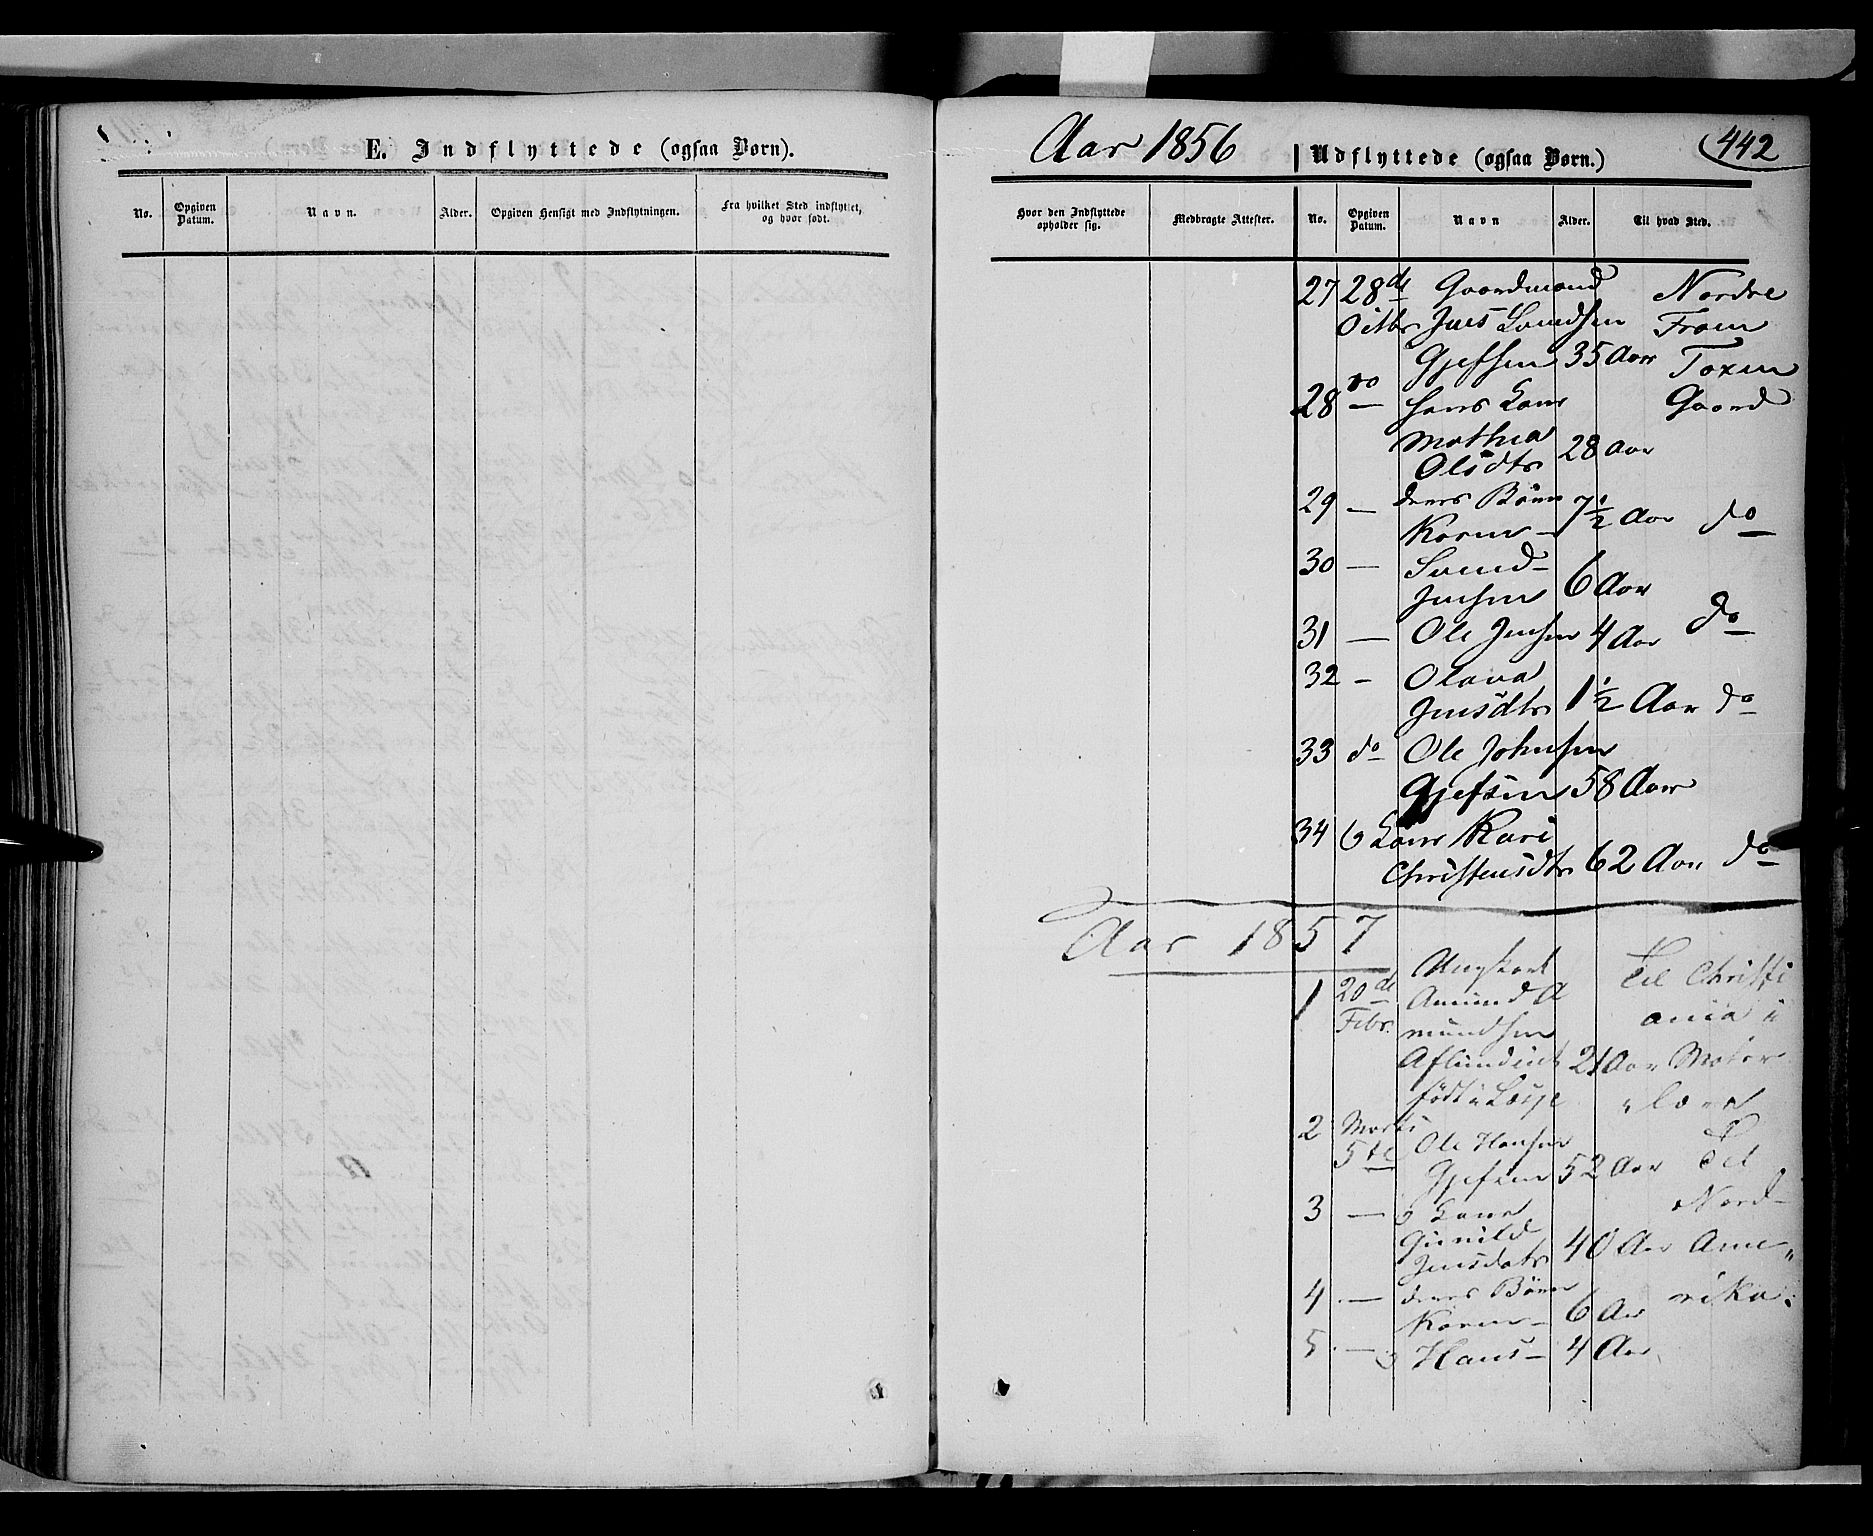 E. Indflyttede (ogsaa Børn).
No.
Opgiven Datum.
Navn.
Alder.
Opgiven Hensigt med Indflytningen.
Fra hvilket Sted indflyttet, og hvor født.
Aar 1856
Udflyttede (ogsaa Børn.)
442
Hvor den Indflyttede opholder sig.
Medbragte Attester.
No.
Opgiven Datum.
Navn
Alder.
Til hvad Sted.
27 28de Gaardmand Nordre
Octbr Jens Svendsen Fron
Gjefsen 35 Aar
28 do hans Kone Gaard
Mathea
Olsdtr 28 Aar
29 — deres Børn 7½ Aar do
Karen —
30 — Svend
Jensen 6 Aar
31 — Ole Jensen 4 Aar do
32 — Olava
Jensdtr 1½ Aar do
33 do Ole Johnsen
Gjefsen 58 Aar
34 Kone Kari
Christensdtr 62 Aar do
Aar 1857
Ungkarl Til Christi
1 20de Amund A
Febr. mundsen ania
21 Aar
født i Lesje
2 Marts Ole Hansen
5te Gjefsen 52 Aar Til
3 — Kone Nord-
Gunild
Jensdatr 40 Aar Ame
4 — deres Børn
Karen — 6 Aar rika
5 — Hans — 4 Aar